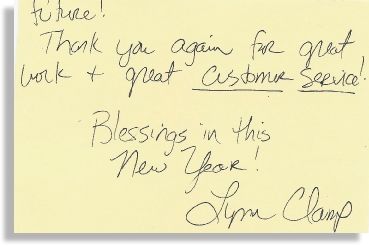 future!
Thank you again for great
work + great Customer Service!
Blessings in this
New Year!
Lynn Clamp